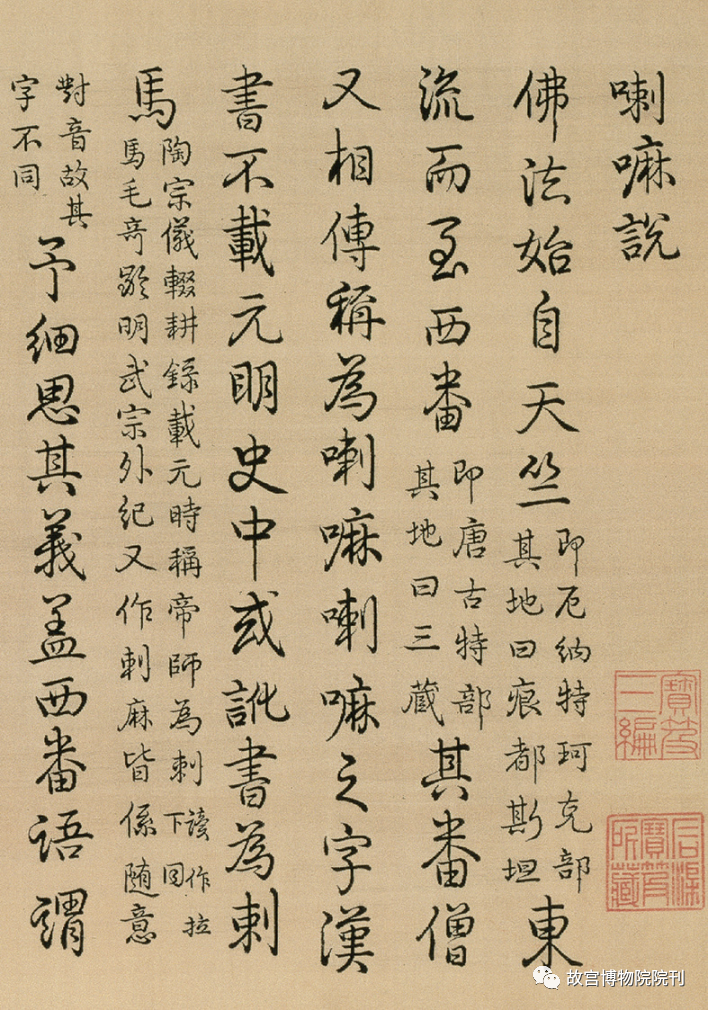 喇嘛說
佛法始自天竺
即厄納特珂克部
其地曰痕都斯坦
東
流而至西番
即唐古特部
其地曰三藏
其番僧
又相傳稱為喇嘛喇嘛之字漢
書不載元明史中或訛書為剌
馬
陶宗儀輟耕錄載元時稱帝師為剌
讀作拉
下同
馬毛奇齡明武宗外紀又作剌麻皆係随意
對音故其
字不同
予細思其義蓋西番語謂
寶笈
三編
石渠
寶笈
所藏
故宫博物院院刊